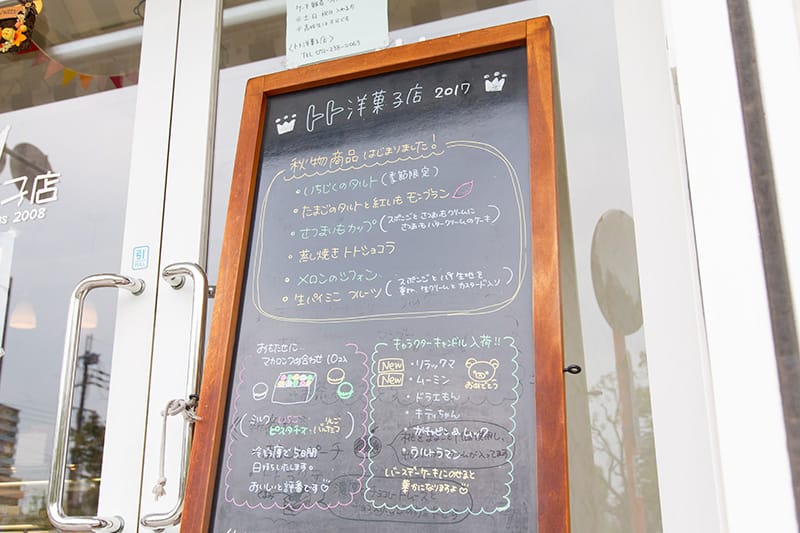 ＊土日祝は
〈トト洋菓子店〉
TEL 072-238-2063
子店
2008
引
PULL
トト洋菓子店 2017
秋物商品はじまりました！
・いちじくのタルト（季節限定）
・たまごのタルトと紅いもモンブラン
・さつまいもカップ（スポンジとさつまいもクリームに
さつまいもバタークリームのケーキ）
・蒸し焼きトトショコラ
・メロンのシフォン
・生パイミニ フルーツ（スポンジとパイ生地を
重ね、生クリームとカスタード入り）
おもたせに…
マカロンつめ合わせ 10コ入
（ミルク・いちご・りんご
ピスタチオ・
冷蔵庫で5日間
日持ちいたします。
おいしいと評判です
キャラクターキャンドル入荷!!
New・リラックマ
New・ムーミン
・ドラえもん
・キティちゃん
・ガチャピン＆ムック
・ウルトラマン
おめでとう
バースデーケーキにのせると
華かになりますよ